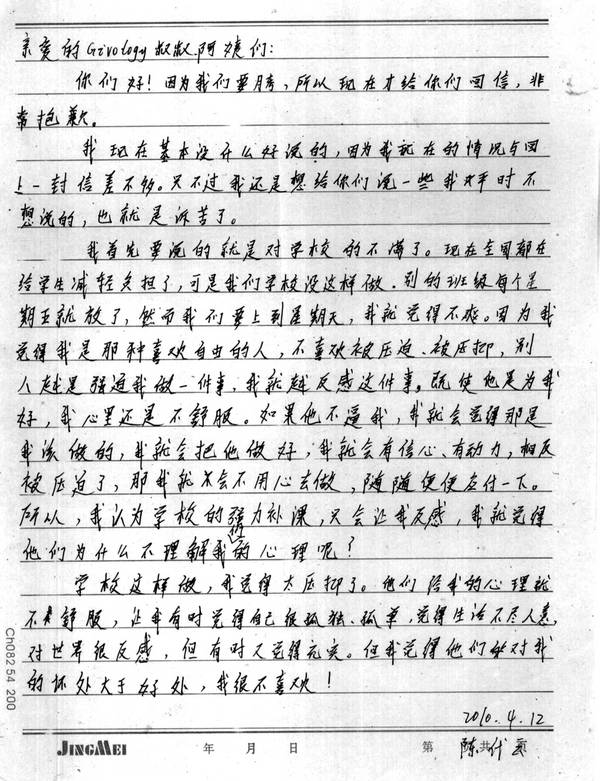 亲爱的Givology叔叔阿姨们:
你们好!因为我们要月考,所以现在才给你们回信,非
常抱歉。
我现在基本没什么好说的,因为我现在的情况与回
上一封信差不多。只不过我还是想给你们说一些我平时不
想说的,也就是诉苦了。
我首先要说的就是对学校的不满了。现在全国都在
给学生减轻负担了,可是我们学校没这样做。别的班级每个星
期五就放了,然而我们要上到星期天,我就觉得不爽。因为我
觉得我是那种喜欢自由的人,不喜欢被压迫、被压抑,别
人越是强迫我做一件事,我就越反感这件事。既使他是为我
好,我心里还是不舒服。如果他不逼我,我就会觉得那是
我该做的,我就会把他做好,我就会有信心、有动力,相反
被压迫了,那我就不会不用心去做,随随便便应付一下。
所以,我认为学校的强力补课,只会让我反感,我就觉得
他们为什么不理解我们的心理呢?
学校这样做,我觉得太压抑了。他们给我的心理就
不舒服,让我有时觉得自己很孤独、孤单,觉得生活不尽人意,
对世界很反感,但有时又觉得充实。但我觉得他们对我
的坏处大于好处,我很不喜欢!
2010.4.12
陈代
JINGMEI 年 月 日 第 共
Ch082 54 200